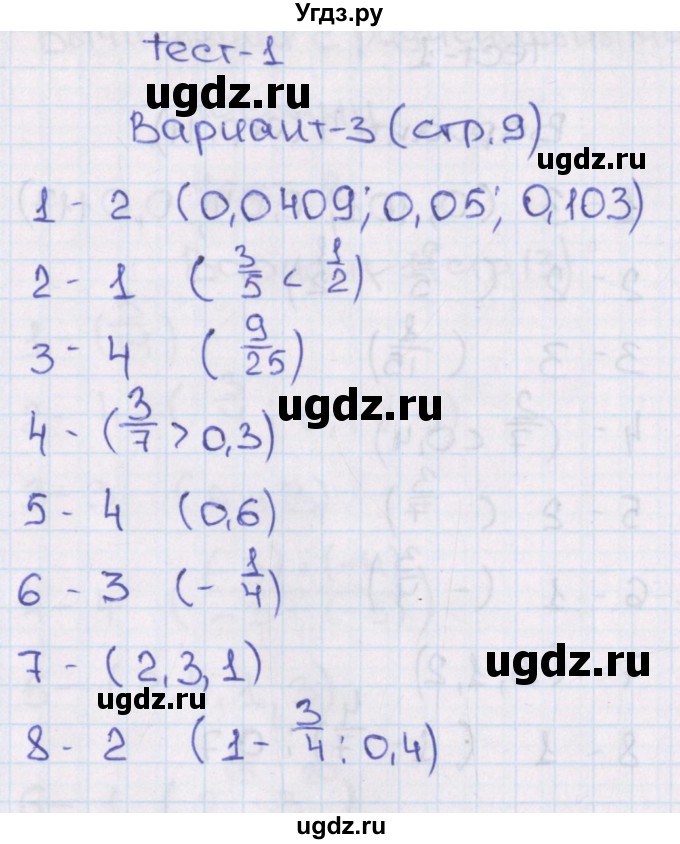 Угдз.ру
тест-1
ugdz.ru
Вариант-3 (стр.9)
ugdz.ru
1 - 2 (0,0409; 0,05; 0,103)
2 - 1 (3/5 < 1/2)
ugdz.ru
3 - 4 (9/25)
ugdz.ru
4 - (3/7 > 0,3)
5 - 4 (0,6)
ugdz.ru
6 - 3 (- 1/4)
7 - (2,3,1)
ugdz.ru
ugdz.ru
8 - 2 (1 - 3/4 : 0,4)
ugdz.ru